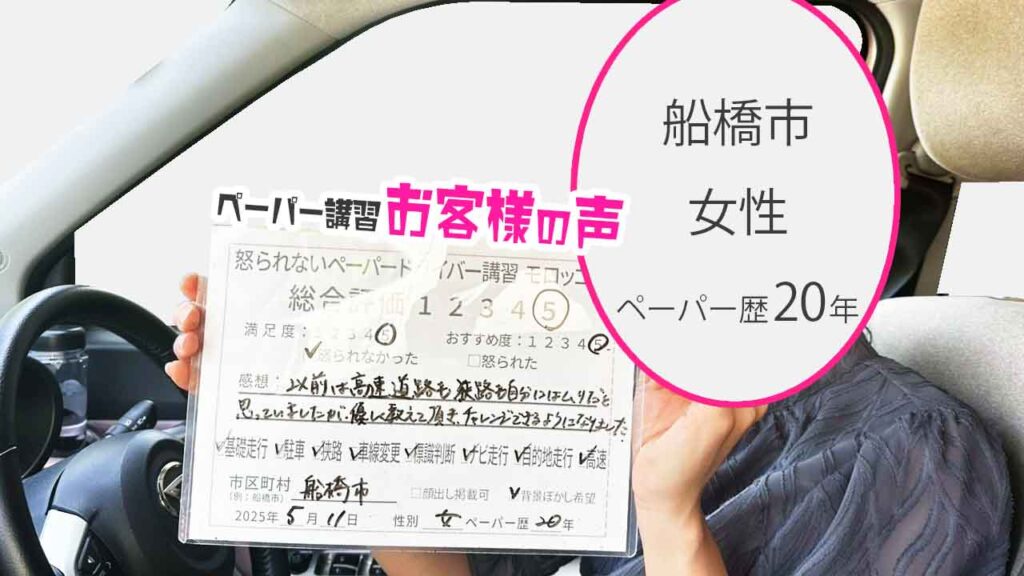 船橋市
女性
ペーパー歴20年
ペーパー講習 お客様の声
怒られないペーパードライバー講習 モロッコ
総合評価 1 2 3 4 5
満足度：1 2 3 4 5 おすすめ度：1 2 3 4 5
✓怒られなかった □怒られた
感想：以前は高速道路も狭路も自分にはムリだと
思っていましたが、優しく教えて頂き、チャレンジできるようになりました
✓基礎走行 ✓駐車 ✓狭路 ✓車線変更 ✓標識判断 ✓ナビ走行 ✓目的地走行 ✓高速
市区町村 船橋市 □顔出し掲載可 ✓背景ぼかし希望
(例：船橋市)
2025年 5月 11日 性別 女 ペーパー歴 20年